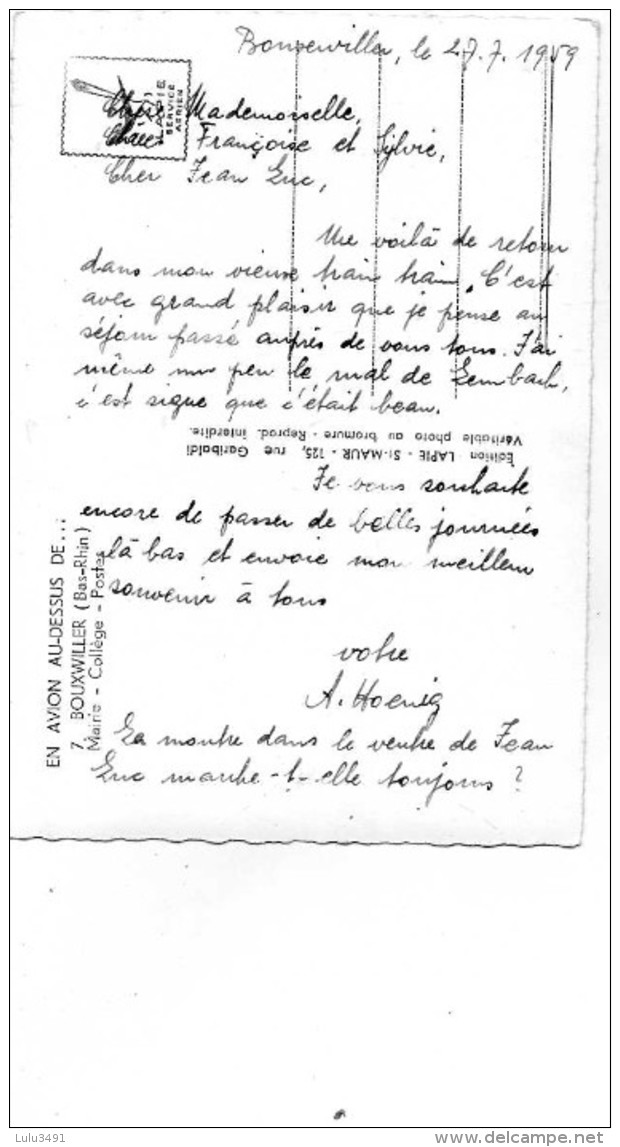 Bouxwiller, le 27.7.1959
Chère Mademoiselle,
Chères Françoise et Sylvie,
Cher Jean Luc,
Me voilà de retour
dans mon vieux train train. C'est
avec grand plaisir que je pense au
séjour passé auprès de vous tous. J'ai
même un peu le mal de Lembach,
c'est signe que c'était beau.
Je vous souhaite
encore de passer de belles journées
là bas et envoie mon meilleur
souvenir à tous
votre
A. Hoenig
La montre dans le ventre de Jean
Luc marche-t-elle toujours ?
LAPIE
SERVICE
AERIEN
Edition LAPIE - St-MAUR - 125, rue Garibaldi
Véritable photo au bromure - Reprod. interdite.
EN AVION AU-DESSUS DE...
7. BOUXWILLER (Bas-Rhin)
Mairie - Collège - Postes
Lulu3491
delcampe.net